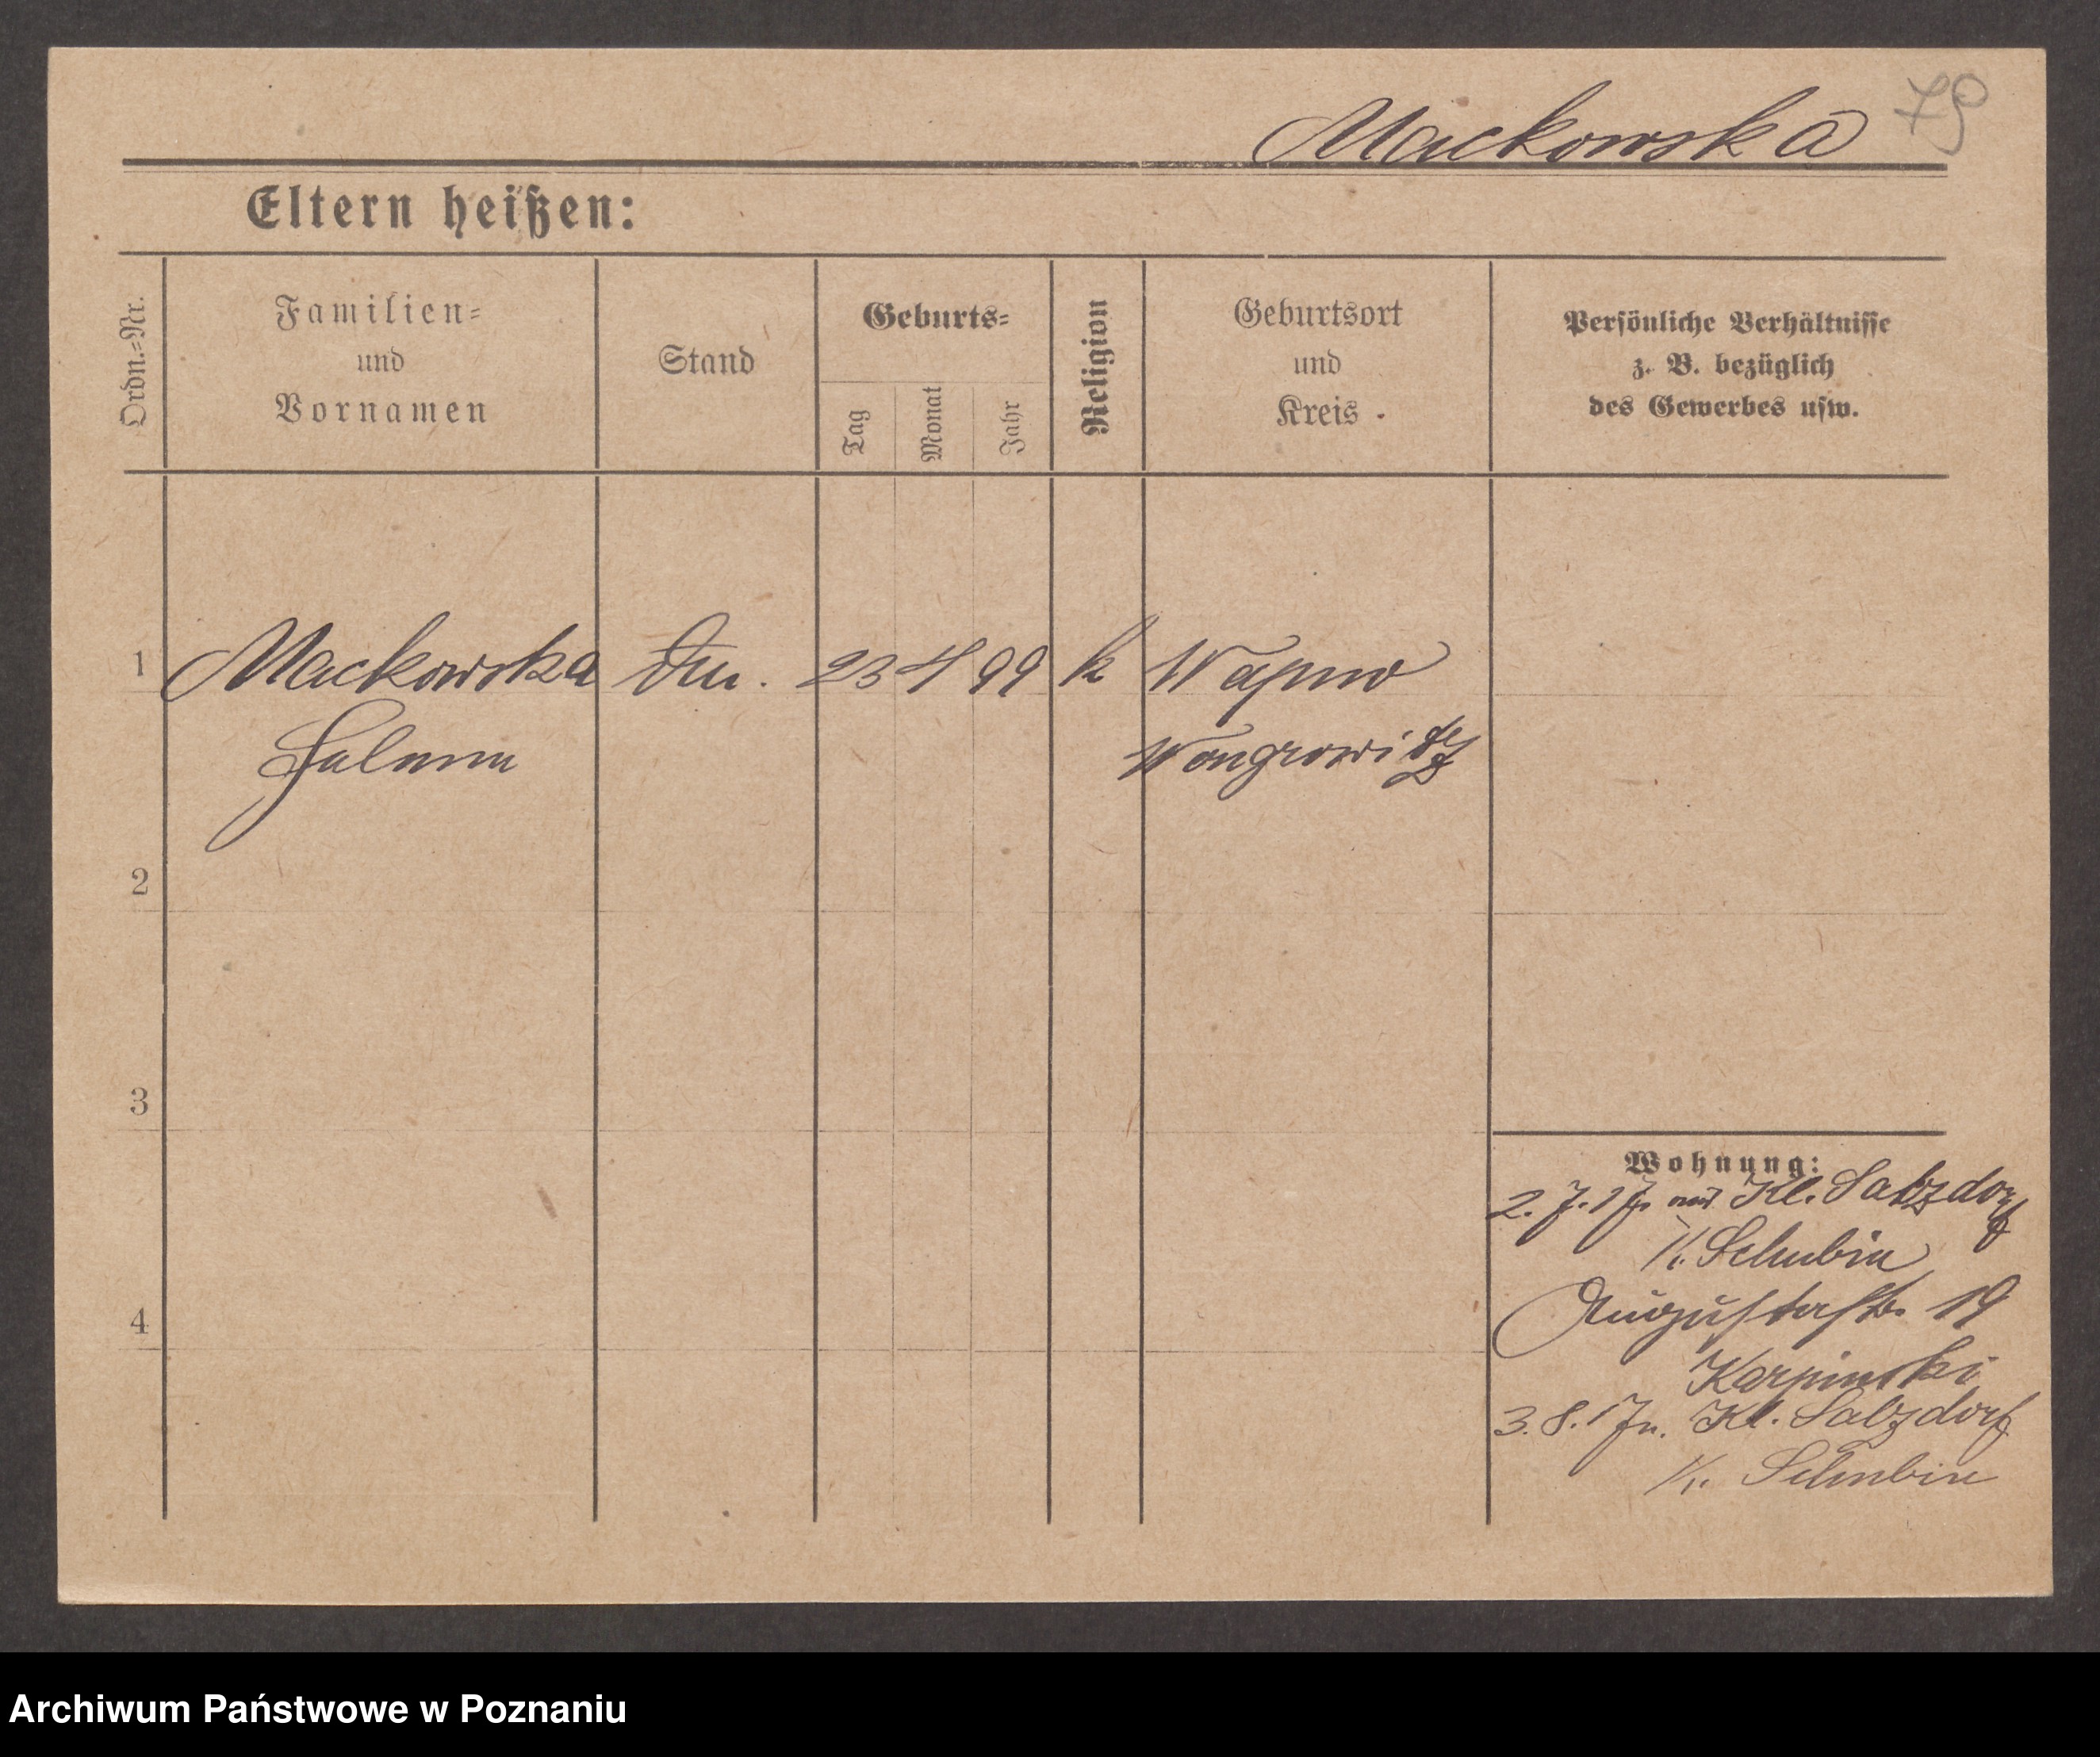 79
Mackowska
Eltern heißen:
Ordn.=Nr.
Familien=
und
Vornamen
Stand
Geburts=
Tag
Monat
Jahr
Religion
Geburtsort
und
Kreis.
Persönliche Verhältnisse
z. B. bezüglich
des Gewerbes usw.
1
Mackowska
23 4 99 k Wapno
Wongrowitz
2
3
4
Wohnung:
2. 7. 17. aus Kl. Salzdorf
K. Schubin
Augustastr. 19
Karpinski
3. 8. 17 n. Kl. Salzdorf
K. Schubin
Archiwum Państwowe w Poznaniu